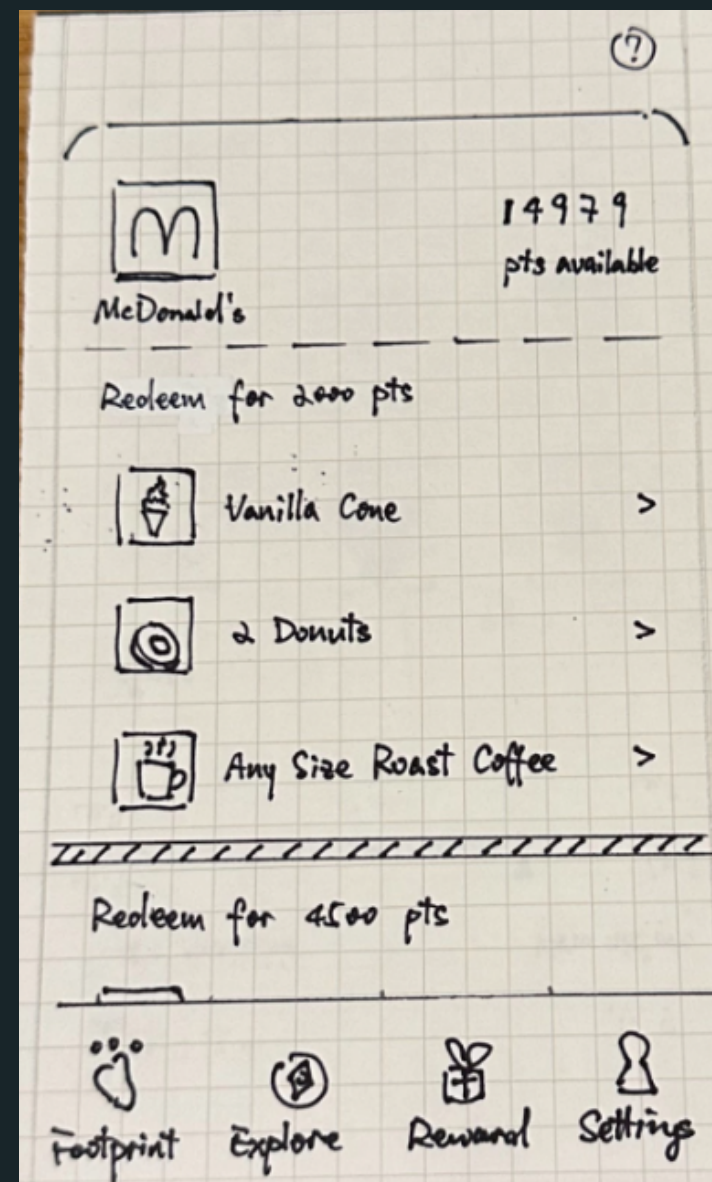 ?
M
14979
pts available
McDonald's
Redeem for 2000 pts
Vanilla Cone >
2 Donuts >
Any Size Roast Coffee >
Redeem for 4500 pts
Footprint Explore Reward Settings